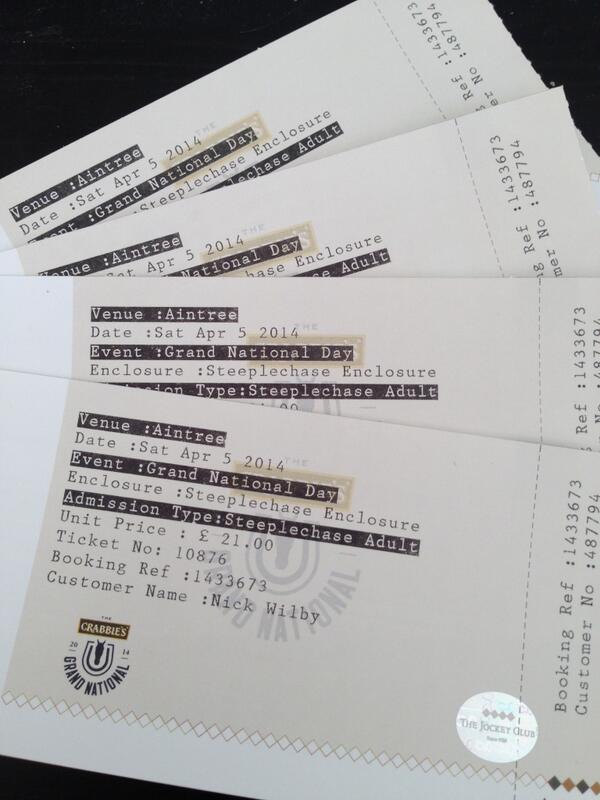 Venue :Aintree
Date :Sat Apr 5 2014
Event :Grand National Day
Steeplechase Enclosure
Steeplechase Adult
Ref :1433673
No :487794
THE
Venue :Aintree
Sat Apr 5 2014
Grand National Day
Steeplechase Enclosure
Steeplechase Adult
Ref :1433673
No :487794
THE
Venue :Aintree
Date :Sat Apr 5 2014
Event :Grand National Day
Enclosure :Steeplechase Enclosure
Admission Type:Steeplechase Adult
Ref :1433673
:487794
THE
Venue :Aintree
Date :Sat Apr 5 2014
Event :Grand National Day
Enclosure :Steeplechase Enclosure
Admission Type:Steeplechase Adult
Unit Price : £ 21.00
Ticket No: 10876
Booking Ref :1433673
Customer Name :Nick Wilby
THE
GRAND NATIONAL
THE
CRABBIE'S
20 14
GRAND NATIONAL
THE JOCKEY CLUB
Booking Ref :1433673
Customer No :487794